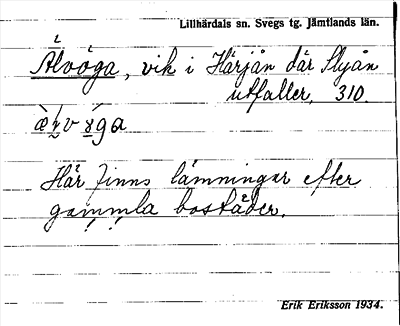 Lillhärdals sn. Svegs tg. Jämtlands län.
Älvöga, vik i Härjån där Slyån
utfaller, 310.
Här finns lämningar efter
gammla bostäder.
Erik Eriksson 1934.